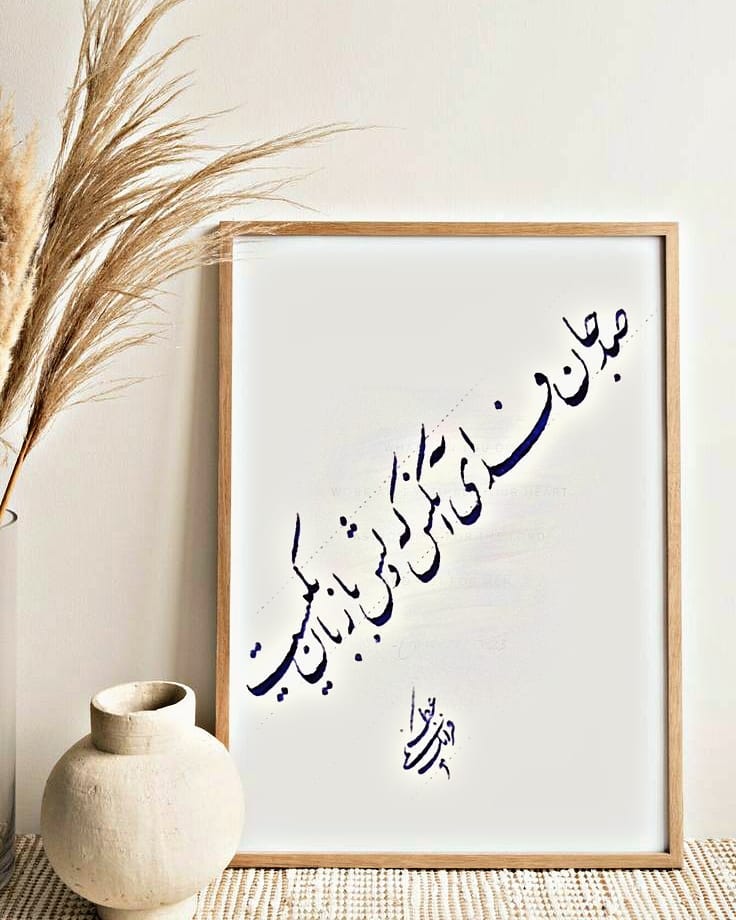 صد جان فدای آنکس که دلش با زبان یکیست